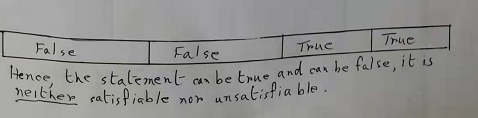 False False True True
Hence, the statement can be true and can be false, it is
neither satisfiable nor unsatisfiable.